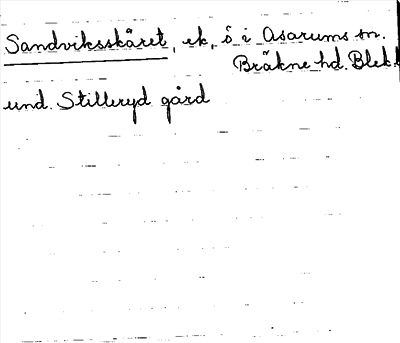 Sandviksskäret, ek, ö i Asarums sn.
Bräkne hd. Blek.
und. Stilleryd gård